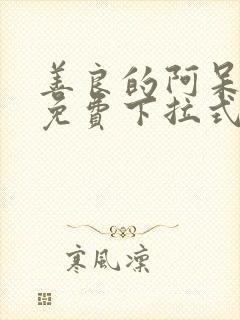 善良的阿呆
免费下拉式
寒風凜